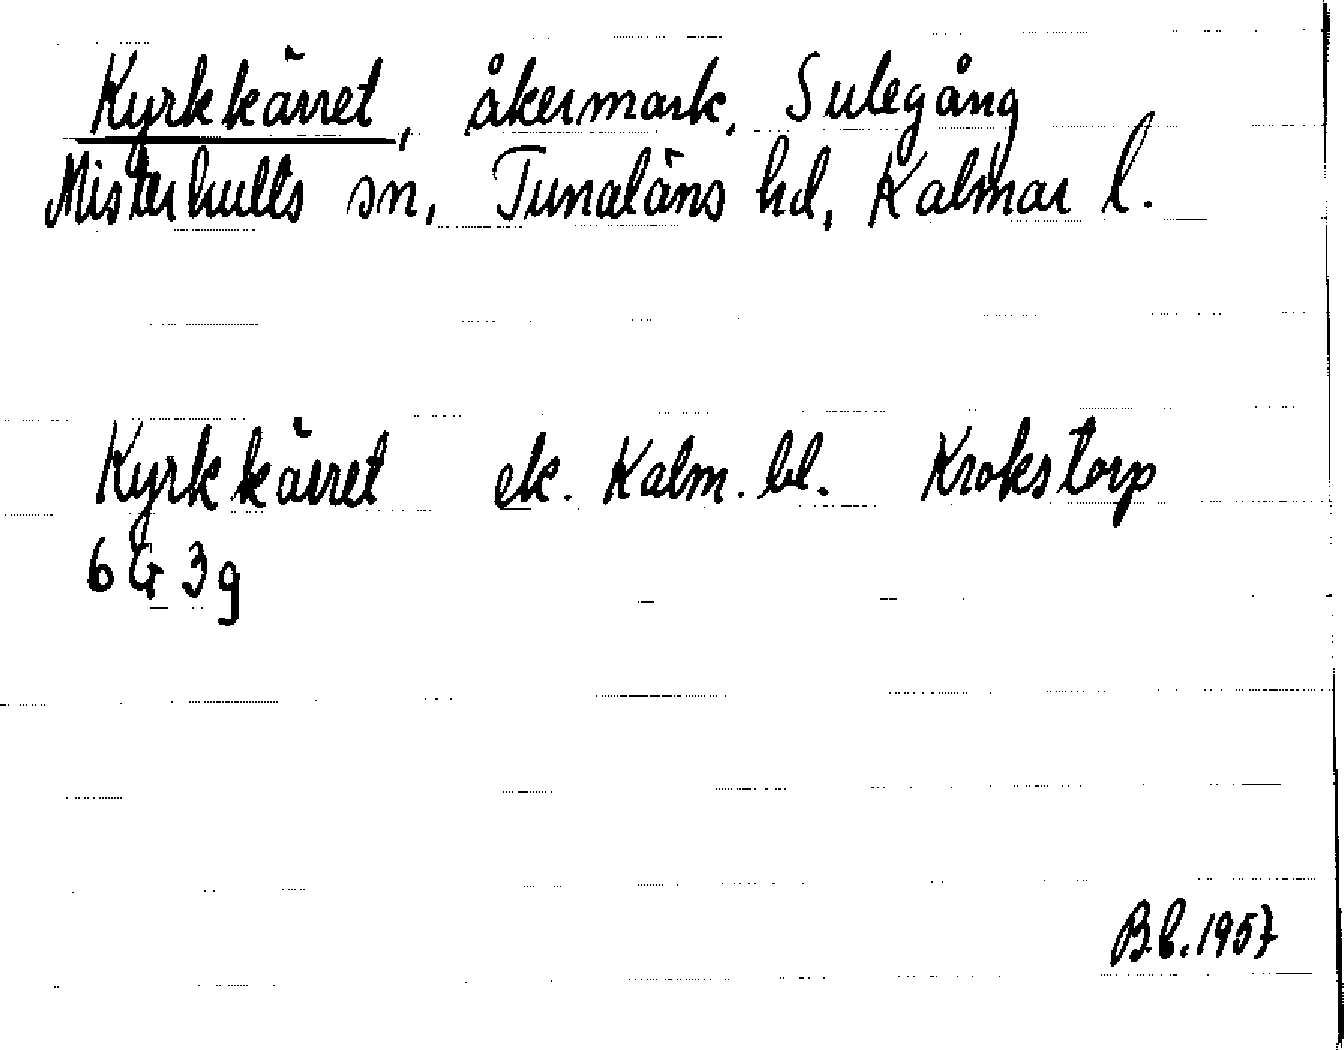 Kyrkkärret, åkermark, Sulegång
Misterhults sn, Tunaläns hd, Kalmar l.
Kyrkkärret ek. Kalm. bl. Krokstorp
6 G 3 g
B.b. 1957